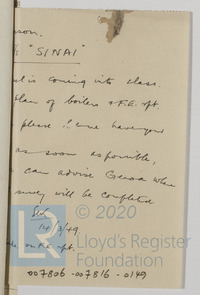 son.
"SINAI"
is coming into class.
plan of boilers & F.E. rpt.
please
as soon as possible,
can advise Genoa when
survey will be completed
14/3/49.
on F.E. rpt.
© 2020
LR Lloyd's Register
Foundation
007806-007816-0149